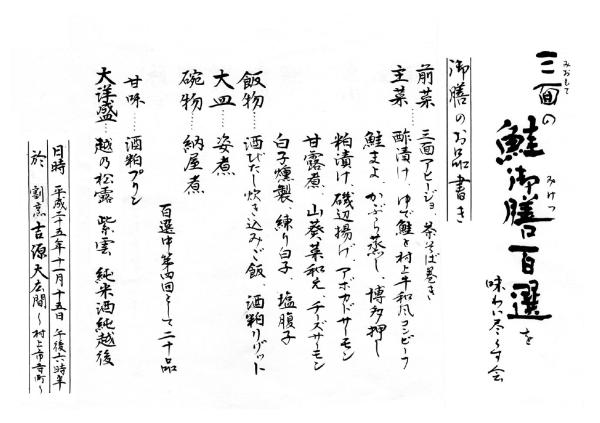 三面の鮭御膳百選を
みおもて
みけつ
味わい尽くす会
御膳のお品書き
前菜……三面アヒージョ 茶そば巻き
主菜……酢漬け、ゆで鮭と村上牛和風コンビーフ
鮭まよ、かぶら蒸し、博多押し
粕漬け、磯辺揚げ、アボカドサーモン
甘露煮、山葵菜和え、チーズサーモン
白子燻製、練り白子、塩腹子
飯物……酒びたし炊き込みご飯、酒粕リゾット
大皿……姿煮
碗物……納屋煮
百選中第四回そして二十品
甘味……酒粕プリン
大洋盛…越乃松露 紫雲 純米酒純越後
日時 平成二十五年十一月十五日 午後六時半
於 割烹 吉源大広間〜村上市寺町〜